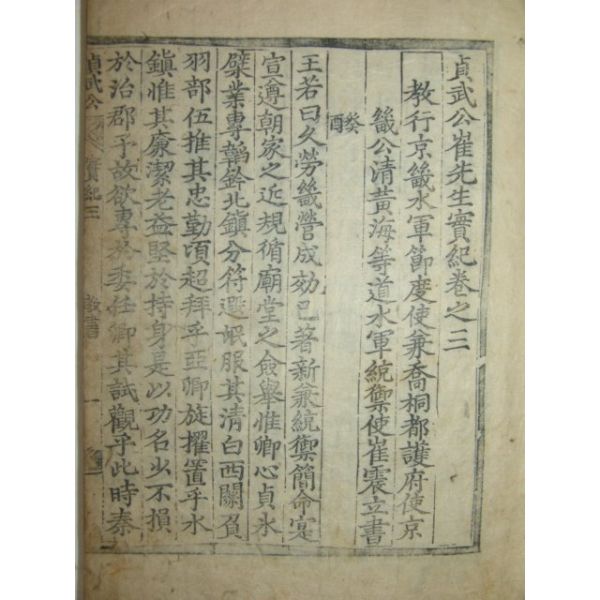 貞武公崔先生實紀卷之三
教行京畿水軍節度使兼喬桐都護府使京
畿公清黃海等道水軍統禦使崔震立書
癸酉
王若曰久勞畿營成効已著新兼統禦簡命寔
宣遵朝家之近規循廟堂之僉舉惟卿心貞氷
蘗業專韜鈐北鎭分符遐氓服其清白西關負
羽部伍推其忠勤頃超拜乎亞卿旋擢置乎水
鎭惟其廉潔老益堅於持身是以功名少不損
於治郡予故欲專於委任卿其試觀乎此時秦
貞武公 實紀三 教書 一